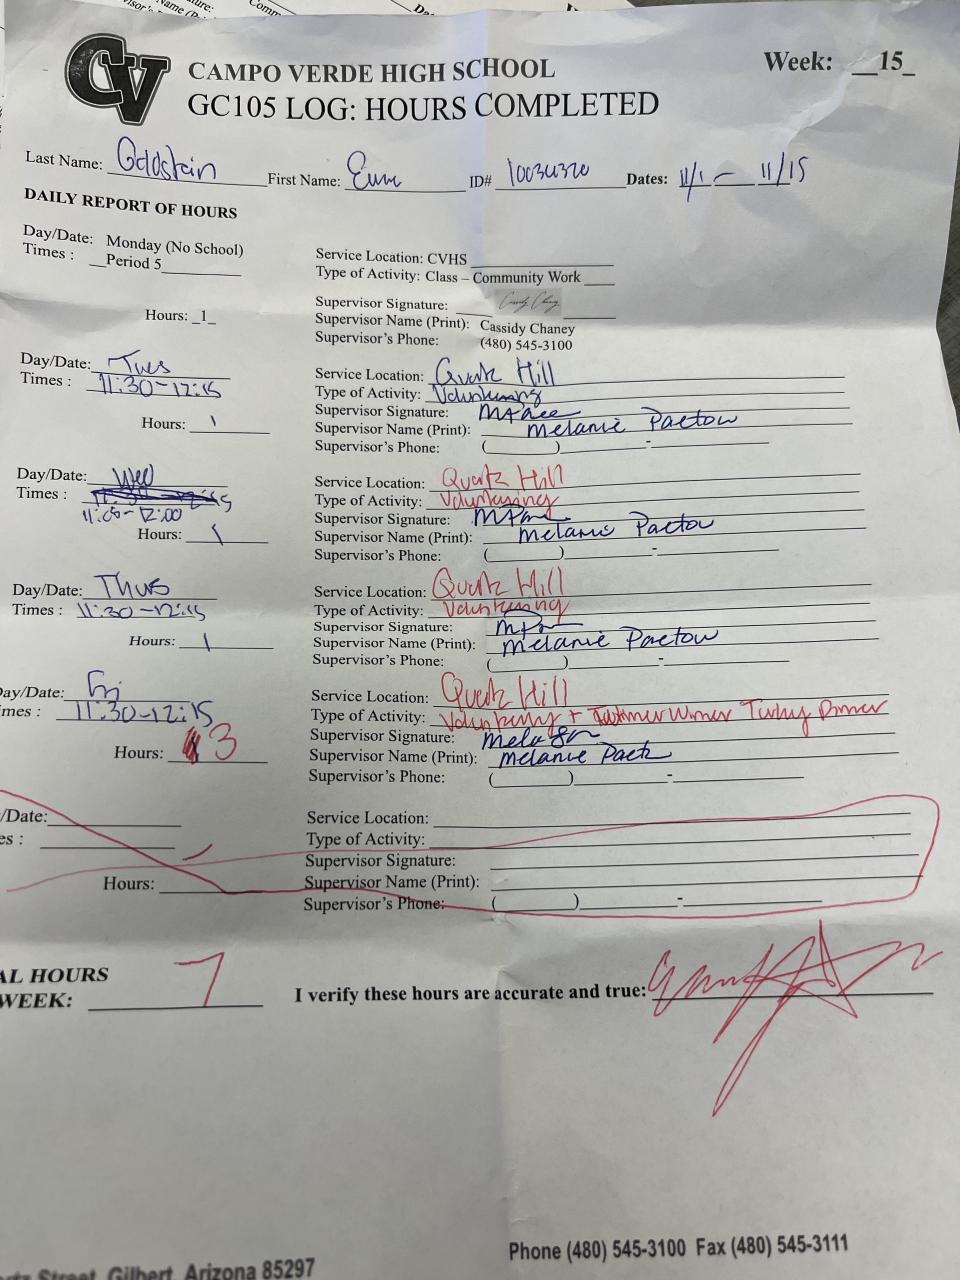 CV
CAMPO VERDE HIGH SCHOOL
Week: __15_
GC105 LOG: HOURS COMPLETED
Last Name: Goldstein First Name: ID# 10034320 Dates: 11/1 — 11/15
DAILY REPORT OF HOURS
Day/Date: Monday (No School)
Times : __Period 5
Service Location: CVHS
Type of Activity: Class – Community Work
Hours: _1_
Supervisor Signature: Cassidy Chaney
Supervisor Name (Print): Cassidy Chaney
Supervisor's Phone: (480) 545-3100
Day/Date: Tues
Times : 11:30-12:15
Hours: 1
Service Location: Quartz Hill
Type of Activity: Volunteering
Supervisor Signature:
Supervisor Name (Print): Melanie Paetow
Supervisor's Phone: ( ) -
Day/Date: Wed
Times : 11:30-12:15
11:05-12:00
Hours: 1
Service Location: Quartz Hill
Type of Activity: Volunteering
Supervisor Signature:
Supervisor Name (Print): Melanie Paetow
Supervisor's Phone: ( ) -
Day/Date: Thurs
Times : 11:30-12:15
Hours: 1
Service Location: Quartz Hill
Type of Activity: Volunteering
Supervisor Signature:
Supervisor Name (Print): Melanie Paetow
Supervisor's Phone: ( ) -
ay/Date: Fri
mes : 11:30-12:15
Hours: 3
Service Location: Quartz Hill
Type of Activity: Volunteering + Turkey Dinner
Supervisor Signature:
Supervisor Name (Print): Melanie
Supervisor's Phone: ( ) -
/Date:
es :
Hours:
Service Location:
Type of Activity:
Supervisor Signature:
Supervisor Name (Print):
Supervisor's Phone: ( ) -
AL HOURS
WEEK: 7
I verify these hours are accurate and true:
Phone (480) 545-3100 Fax (480) 545-3111
Street, Gilbert, Arizona 85297